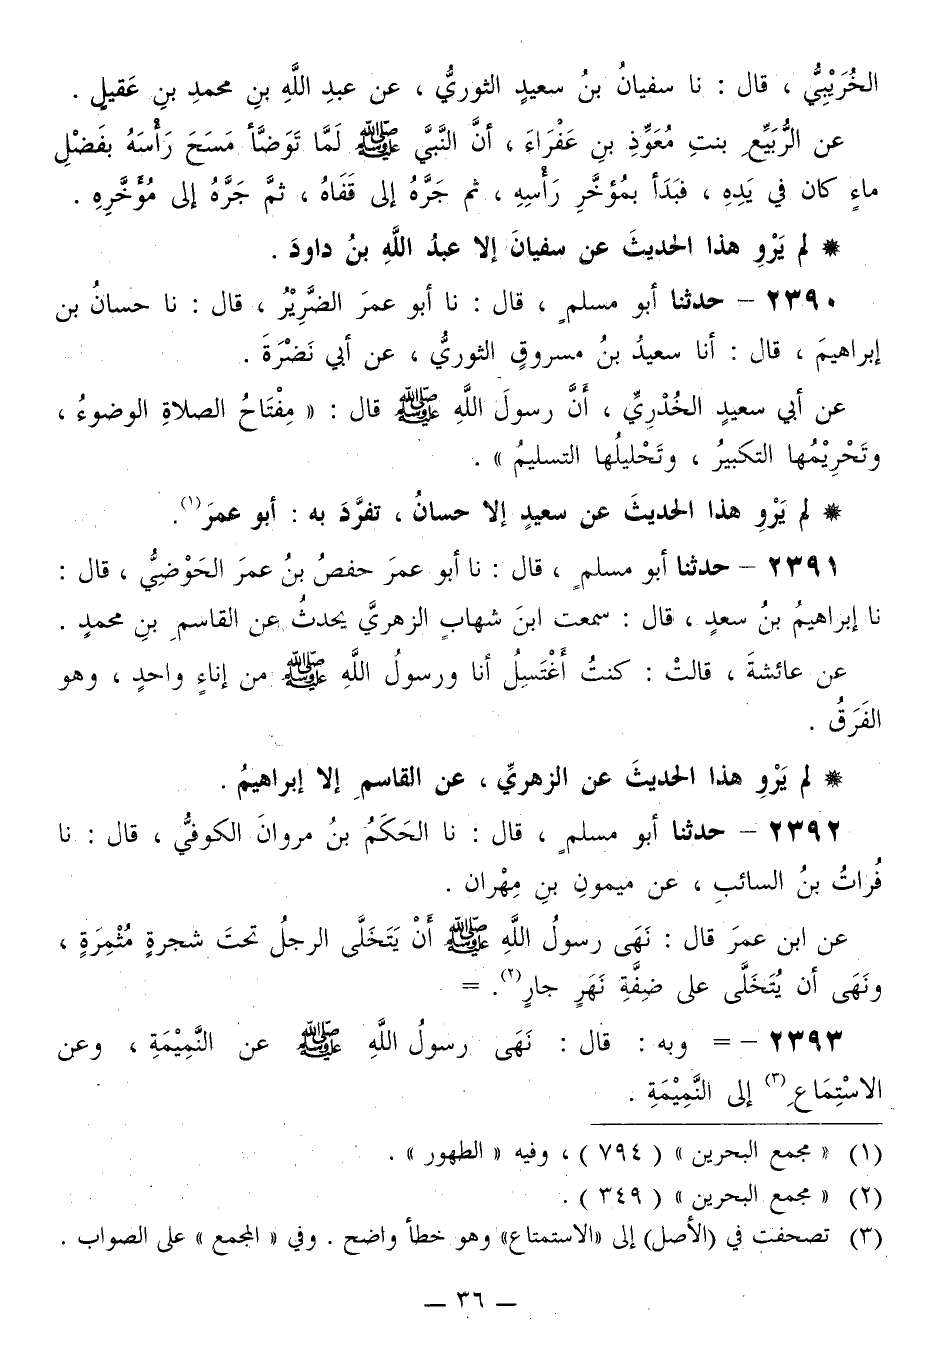 الخُرَيْبِيُّ ، قال : نا سفيانُ بنُ سعيدٍ الثوريُّ ، عن عبدِ اللَّهِ بنِ محمدِ بنِ عَقيلٍ .
عن الرُّبَيِّعِ بنتِ مُعَوِّذِ بنِ عَفْرَاءَ ، أنَّ النَّبيَّ ﷺ لَمَّا تَوَضَّأ مَسَحَ رَأْسَهُ بفَضْلِ
ماءٍ كان في يَدِهِ ، فبَدَأ بمُؤخَّرِ رَأْسِهِ ، ثم جَرَّهُ إلى قَفَاهُ ، ثمَّ جَرَّهُ إلى مُؤَخَّرِهِ .
* لم يَرْوِ هذا الحديثَ عن سفيانَ إلا عبدُ اللَّهِ بنُ داودَ .
٢٣٩٠ – حدثنا أبو مسلمٍ ، قال : نا أبو عمرَ الضَّرِيْرُ ، قال : نا حسانُ بن
إبراهيمَ ، قال : أنا سعيدُ بنُ مسروقٍ الثوريُّ ، عن أبي نَضْرَةَ .
عن أبي سعيدٍ الخُدْرِيِّ ، أَنَّ رسولَ اللَّهِ ﷺ قال : « مِفْتَاحُ الصلاةِ الوضوءُ ،
وتَحْرِيْمُها التكبيرُ ، وتَحْليلُها التسليمُ » .
* لم يَرْوِ هذا الحديثَ عن سعيدٍ إلا حسانُ ، تفرَّدَ به : أبو عمرَ(١).
٢٣٩١ – حدثنا أبو مسلمٍ ، قال : نا أبو عمرَ حفصُ بنُ عمرَ الحَوْضِيُّ ، قال :
نا إبراهيمُ بنُ سعدٍ ، قال : سمعت ابنَ شهابٍ الزهريَّ يحدثُ عن القاسمِ بنِ محمدٍ .
عن عائشةَ ، قالتْ : كنتُ أَغْتَسِلُ أنا ورسولُ اللَّهِ ﷺ من إناءٍ واحدٍ ، وهو
الفَرَقُ .
* لم يَرْوِ هذا الحديثَ عن الزهريِّ ، عن القاسمِ إلا إبراهيمُ .
٢٣٩٢ – حدثنا أبو مسلمٍ ، قال : نا الحَكَمُ بنُ مروانَ الكوفيُّ ، قال : نا
فُراتُ بنُ السائبِ ، عن ميمونِ بنِ مِهْران .
عن ابن عمرَ قال : نَهَى رسولُ اللَّهِ ﷺ أَنْ يَتَخَلَّى الرجلُ تحتَ شجرةٍ مُثْمِرَةٍ ،
ونَهَى أن يُتَخَلَّى على ضِفَّةِ نَهَرٍ جارٍ(٢). =
٢٣٩٣ – = وبه : قال : نَهَى رسولُ اللَّهِ ﷺ عن النَّمِيْمَةِ ، وعن
الاسْتِمَاعِ(٣) إلى النَّمِيْمَةِ .
(١) « مجمع البحرين » ( ٧٩٤ ) ، وفيه « الطهور » .
(٢) « مجمع البحرين » ( ٣٤٩ ) .
(٣) تصحفت في (الأصل) إلى «الاستمتاع» وهو خطأ واضح . وفي « المجمع » على الصواب .
– ٣٦ –